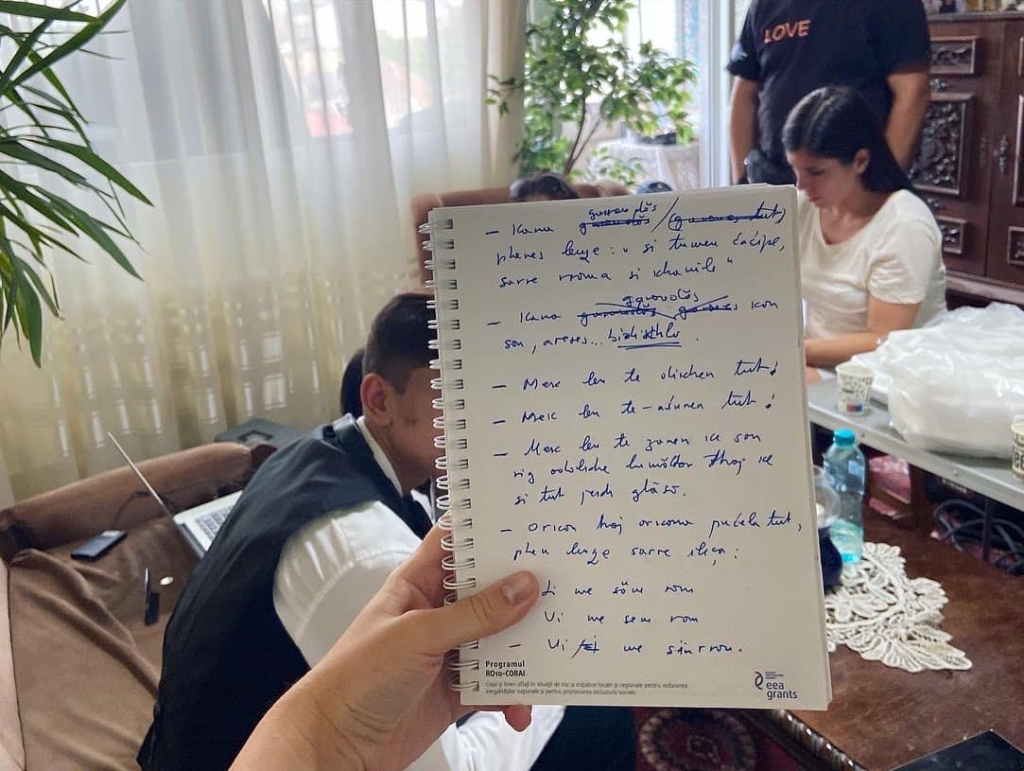 LOVE
garavdŏs
- Kana garavdŏs / (garaves tut)
phenes lenge: „ si tumen čačipe,
sarre rroma si khanile "
garavdŏs
- Kana kon
son, areses... bidikhlo.
- Mek len te dikhen tut!
- Mek len te ašunen tut!
- Mek len te zanen ke son
rig lumăktar thaj ke
si tut jekh glàso.
- Orikon thaj orikana pučela tut,
phen lenge sarre ileça:
Vi me sŏm rom
Vi me sem rom
- Vi me sinrrom.
Programul
RO10-CORAI
Copii și tineri aflați în situații de risc și inițiative locale și regionale pentru reducerea
inegalităților naționale și pentru promovarea incluziunii sociale
eea
grants